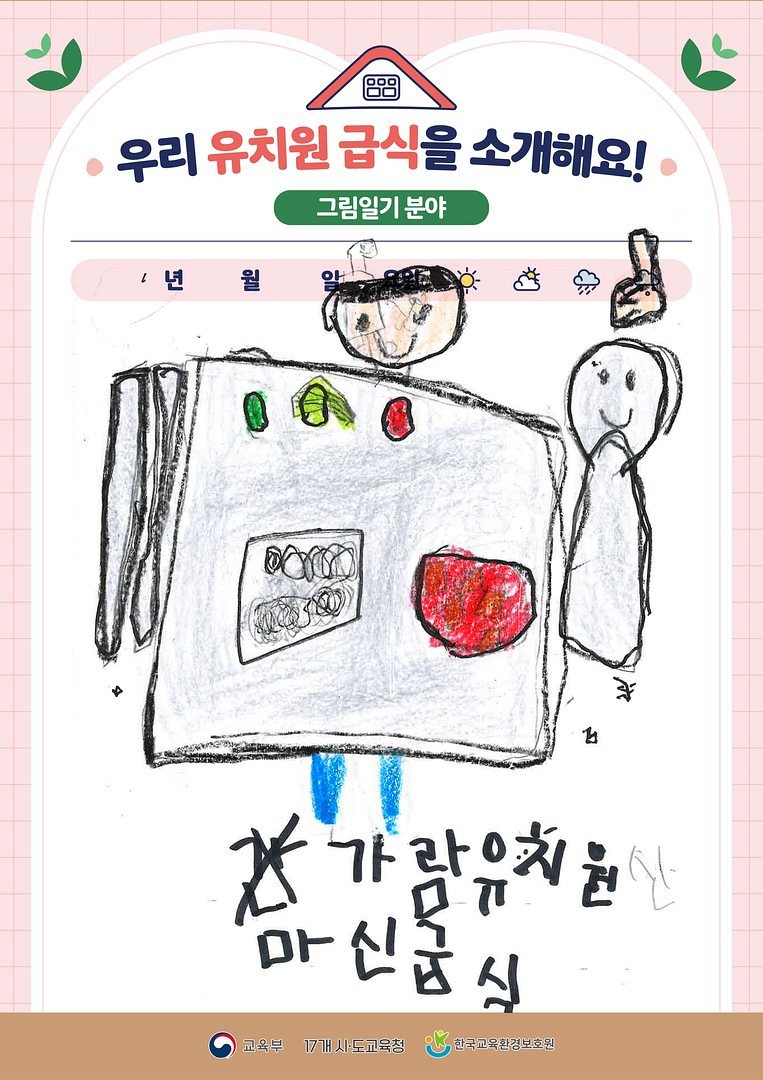 우리 유치원 급식을 소개해요!
그림일기 분야
년 월 일 요일
가람유치원
마신급식
교육부 17개 시·도교육청 한국교육환경보호원